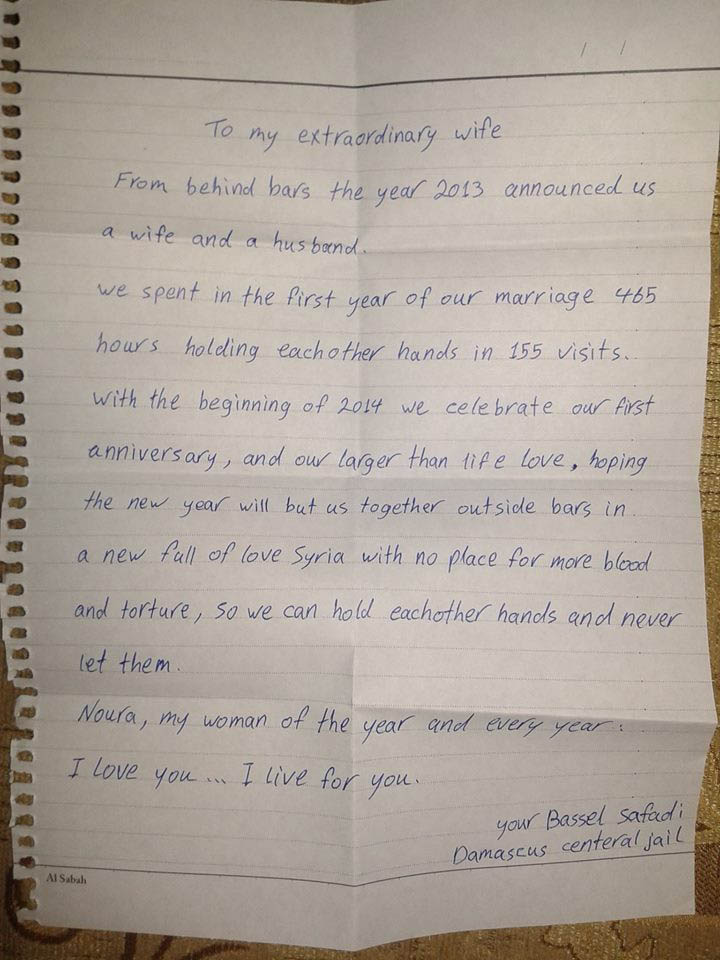 / /
To my extraordinary wife
From behind bars the year 2013 announced us
a wife and a husband.
we spent in the first year of our marriage 465
hours holding eachother hands in 155 visits.
with the beginning of 2014 we celebrate our first
anniversary, and our larger than life love, hoping
the new year will but us together outside bars in
a new full of love Syria with no place for more blood
and torture, so we can hold eachother hands and never
let them.
Noura, my woman of the year and every year:
I love you ... I live for you.
your Bassel Safadi
Damascus centeral jail
Al Sabah